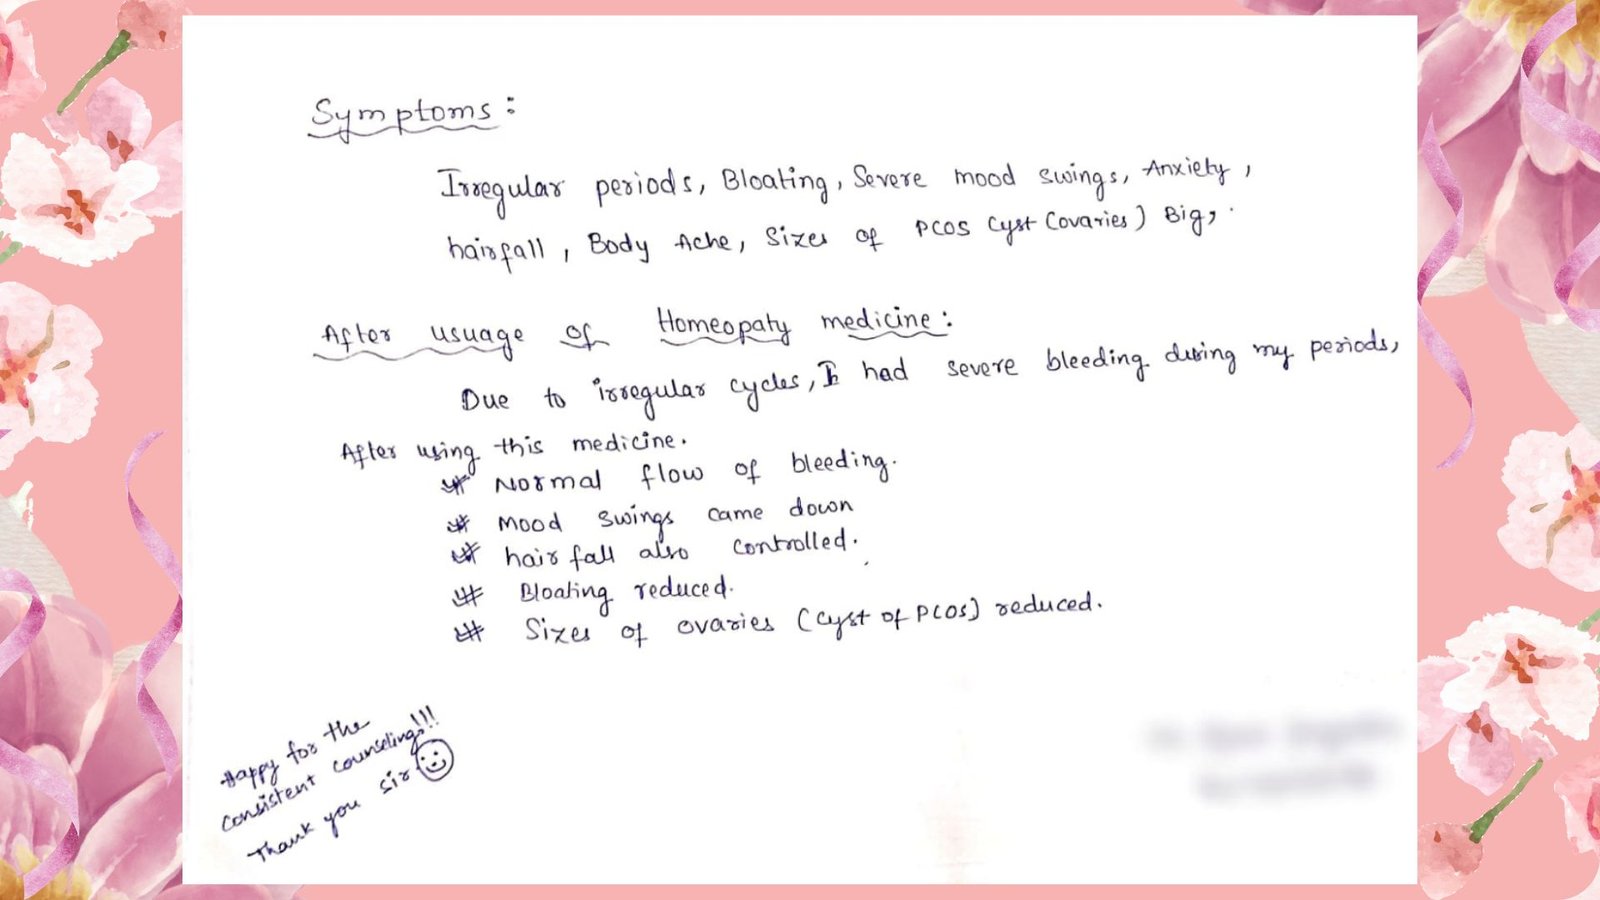 Symptoms:
Irregular periods, Bloating, Severe mood swings, Anxiety,
hairfall, Body Ache, Sizes of PCOS Cyst (ovaries) Big,
After usuage of Homeopaty medicine:
Due to irregular cycles, I had severe bleeding during my periods,
After using this medicine.
* Normal flow of bleeding.
* Mood swings came down
* hair fall also controlled.
* Bloating reduced.
* Sizes of ovaries (Cyst of PCOS) reduced.
Happy for the
consistent counseling!!!
Thank you sir